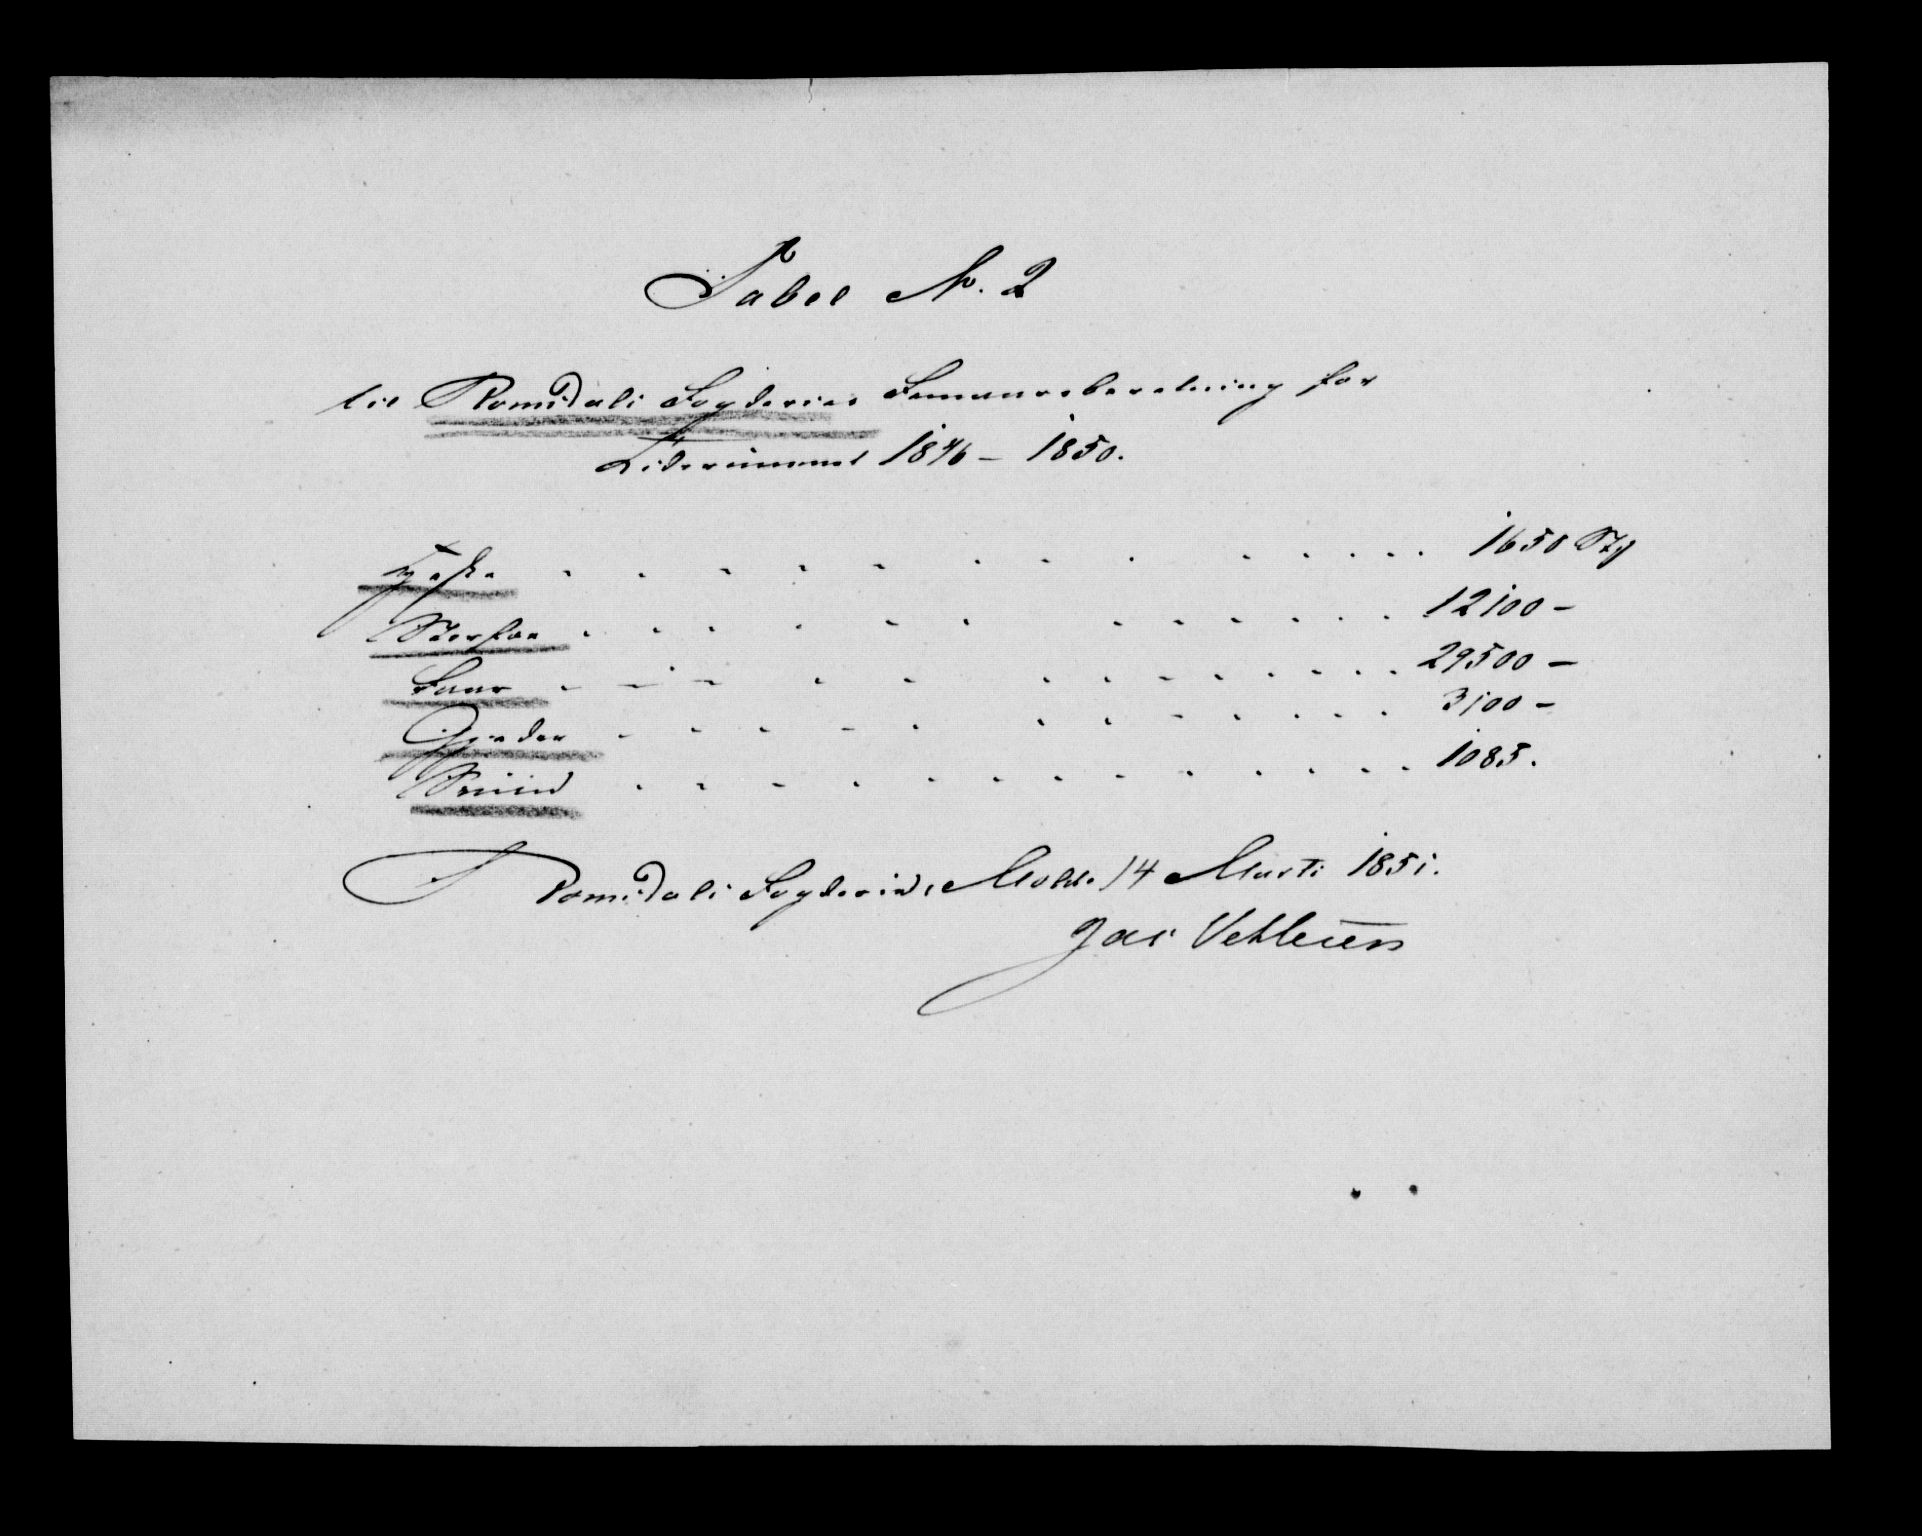 Tabel No. 2
til Romsdals Fogderies Femaarsberetning for
Tidsrummet 1846 – 1850.
Heste . . . . . . . . . . . . . 1650 Stk
Storfæe . . . . . . . . . . . . . 12100 –
Faar . . . . . . . . . . . . . 29500 –
Gjeder . . . . . . . . . . . . . 3100 –
Sviin . . . . . . . . . . . . . 1085.
Romsdals Fogderie, Molde 14 Marts 1851.
Jac Vetlesen